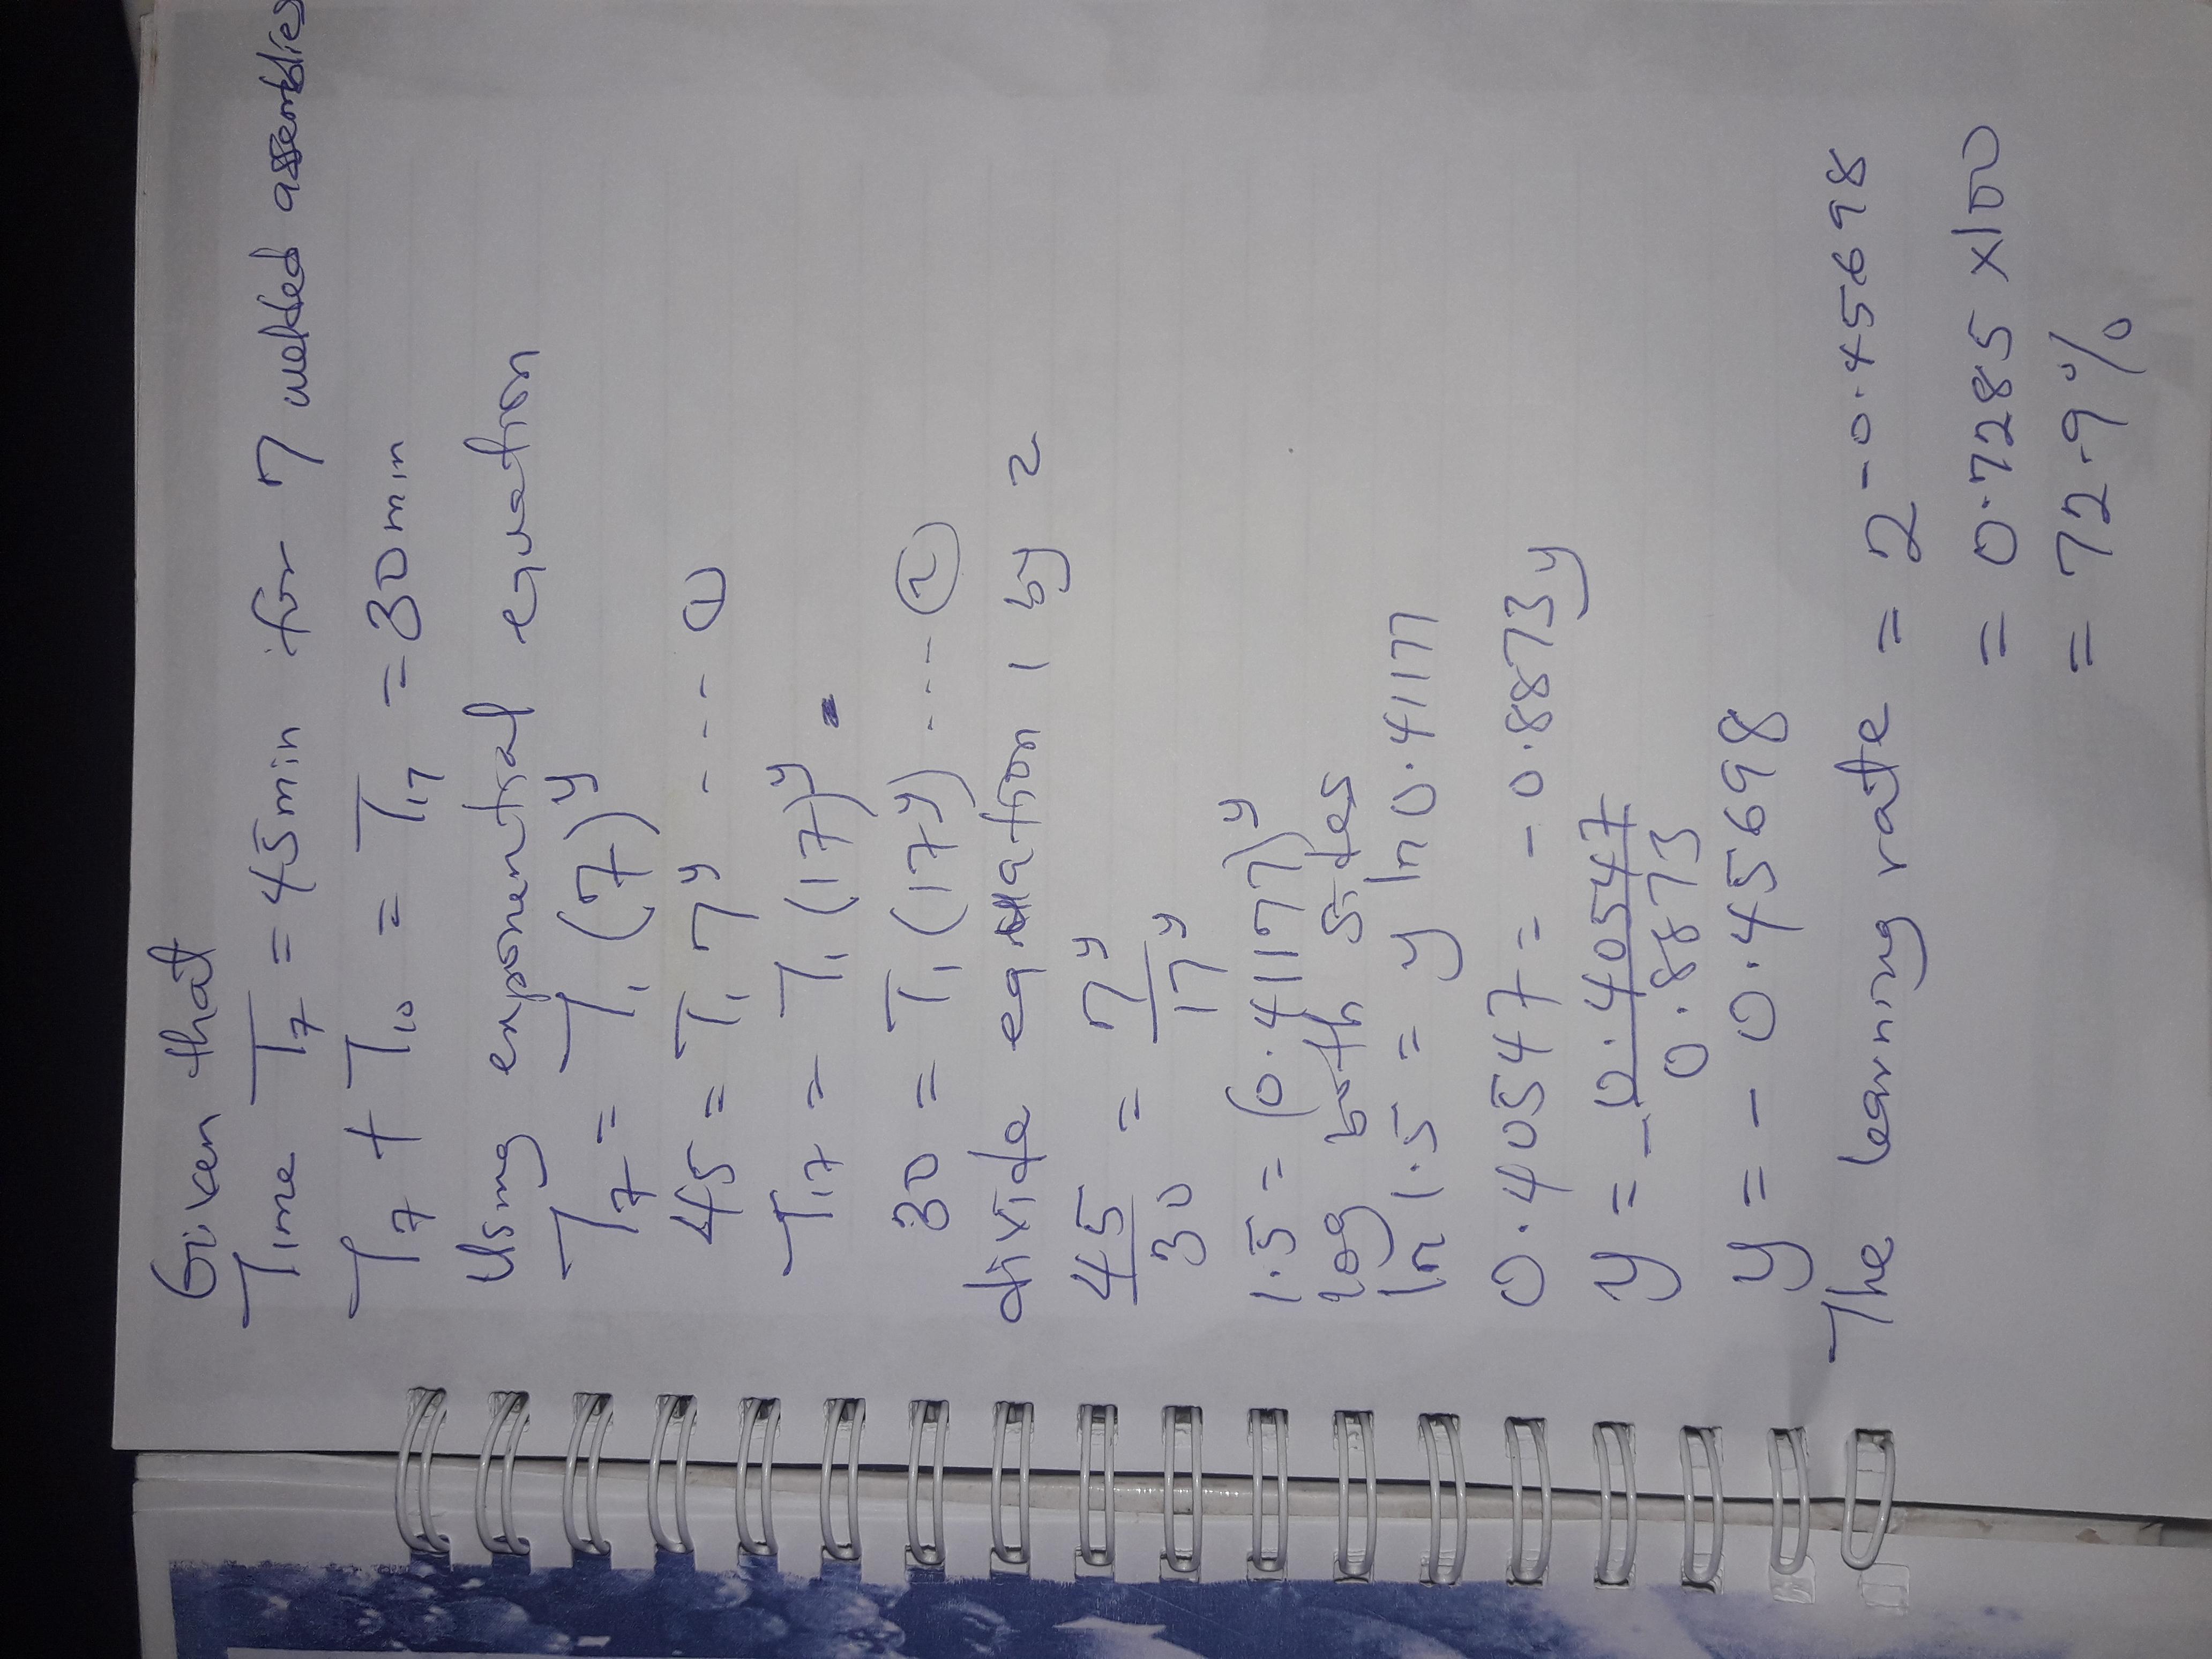 Given that
Time T7 = 45min for 7 welded assemblies
T7 + T10 = T17 = 30min
Using exponential equation
T7 = T1 (7)^y
45 = T1 7^y --- ①
T17 = T1 (17)^y
30 = T1 (17^y) ---- ②
divide equation 1 by 2
45/30 = 7^y/17^y
1.5 = (0.41177)^y
log both sides
ln 1.5 = y ln 0.41177
0.40547 = -0.8873y
y = -0.40547/0.8873
y = -0.45698
The learning rate = 2^-0.45698
= 0.7285 x100
= 72.9%